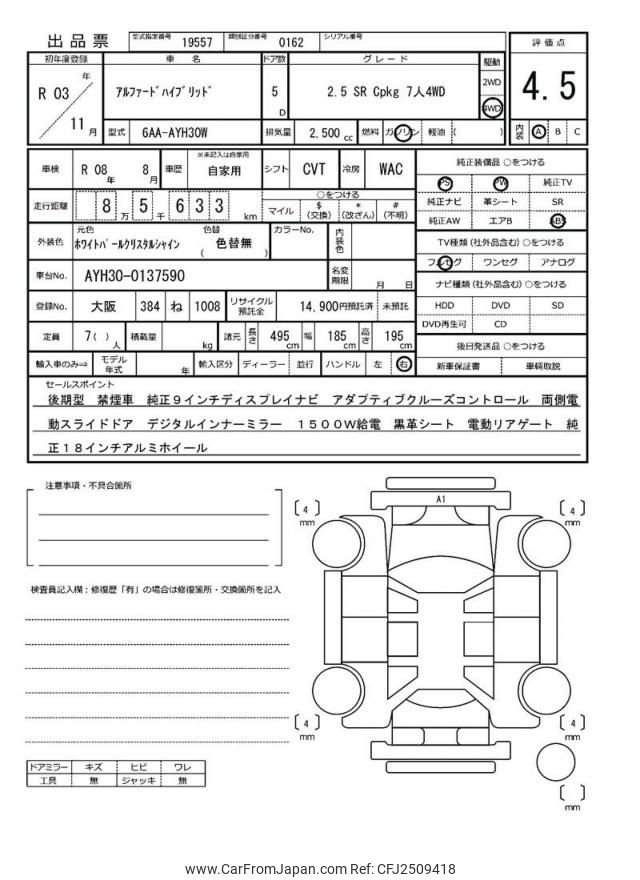 出品票 型式指定番号 19557 類別区分番号 0162 シリアル番号
初年度登録 車名 ドア数 グレード 駆動 評価点
R 03 年 11 月 アルファードハイブリッド 5 D 2.5 SR Cpkg 7人4WD 2WD 4WD 4.5
型式 6AA-AYH30W 排気量 2,500 cc 燃料 ガソリン 軽油 ( ) 内装 A B C
車検 R 08 年 8 月 車歴 ※未記入は自家用 自家用 シフト CVT 冷房 WAC 純正装備品 ○をつける
PS PW 純正TV
走行距離 8 万 5 千 6 3 3 km ○をつける 純正ナビ 革シート SR
マイル $(交換) *(改ざん) #(不明) 純正AW エアB ABS
外装色 元色 ホワイトパールクリスタルシャイン 色替 ( 色替無 ) カラーNo. 内装色 TV種類 (社外品含む) ○をつける
フルセグ ワンセグ アナログ
車台No. AYH30-0137590 名変期限 月 日 ナビ種類 (社外品含む) ○をつける
登録No. 大阪 384 ね 1008 リサイクル預託金 14,900円預託済 未預託 HDD DVD SD
DVD再生可 CD
定員 7( ) 人 積載量 kg 諸元 長さ 495 cm 幅 185 cm 高さ 195 cm 後日発送品 ○をつける
輸入車のみ⇒ モデル年式 年 輸入区分 ディーラー 並行 ハンドル 左 右 新車保証書 車輌取説
セールスポイント
後期型 禁煙車 純正9インチディスプレイナビ アダプティブクルーズコントロール 両側電
動スライドドア デジタルインナーミラー 1500W給電 黒革シート 電動リアゲート 純
正18インチアルミホイール
注意事項・不具合箇所
検査員記入欄：修復歴「有」の場合は修復箇所・交換箇所を記入
A1
[ 4 ] mm [ 4 ] mm
[ 4 ] mm [ 4 ] mm
[ ] mm
ドアミラー キズ ヒビ ワレ
工具 無 ジャッキ 無
www.CarFromJapan.com Ref: CFJ2509418